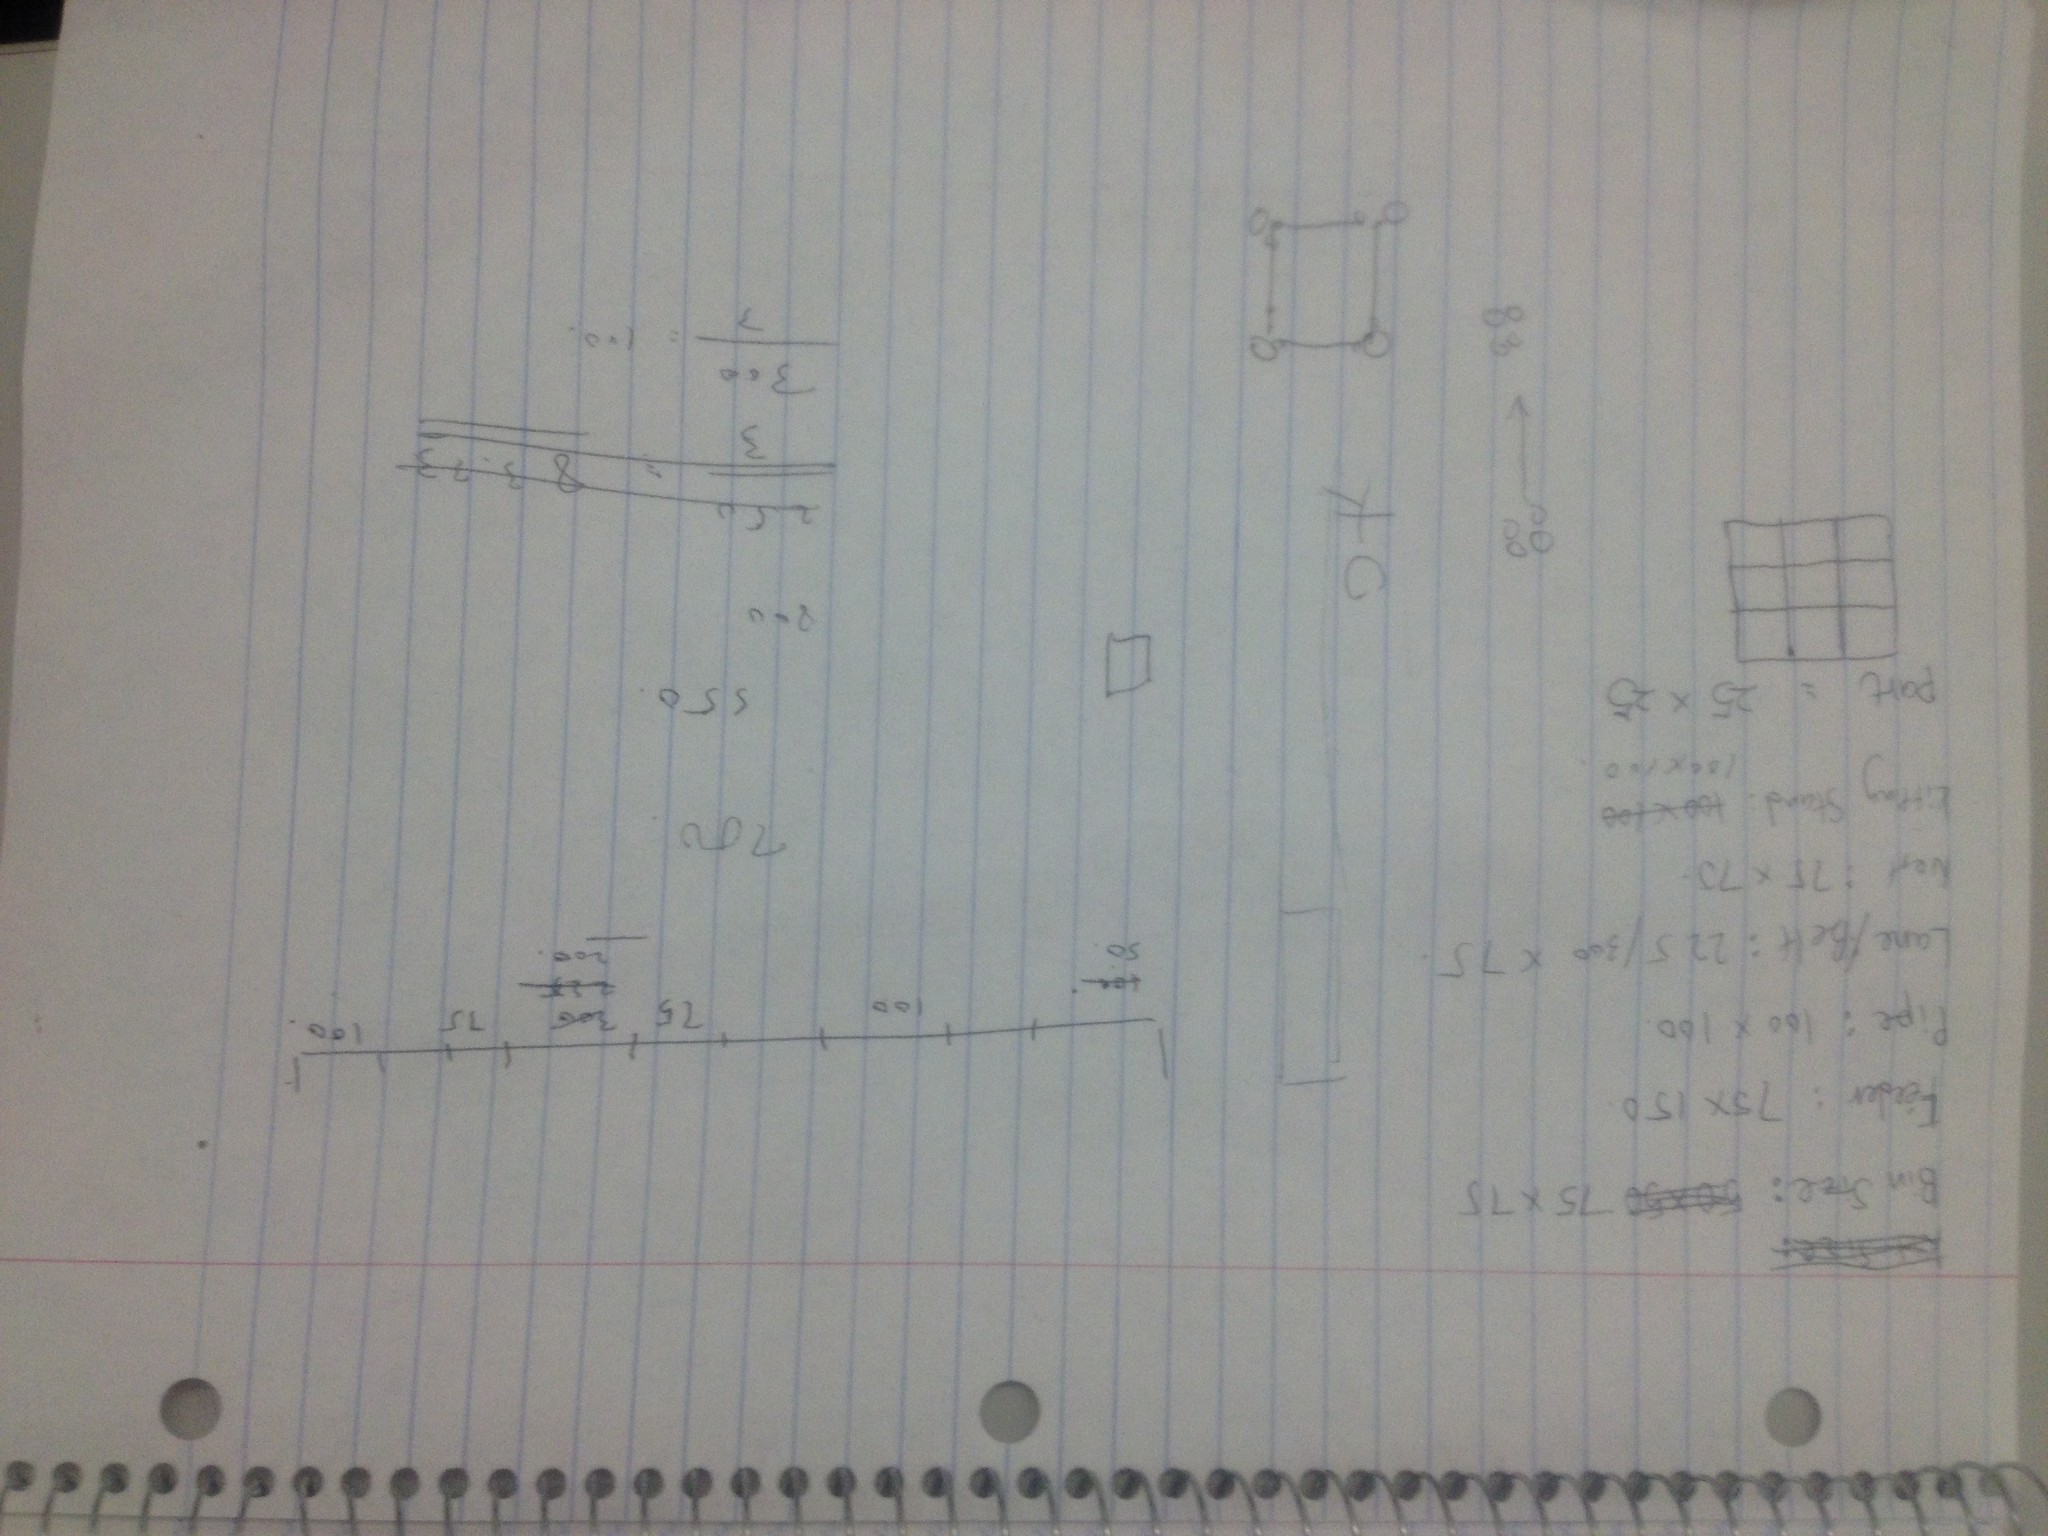 Bin Size: 75 x 75
Feeder: 75 x 150
Pipe: 100 x 100
Lane/Belt: 225/300 x 75
Nest: 75 x 75
Kitting Stand: 100 x 100
100 x 100
Part = 25 x 25
50
100
75
300
225
200
75
100
700
550
800
250
3
=
300
3
= 100